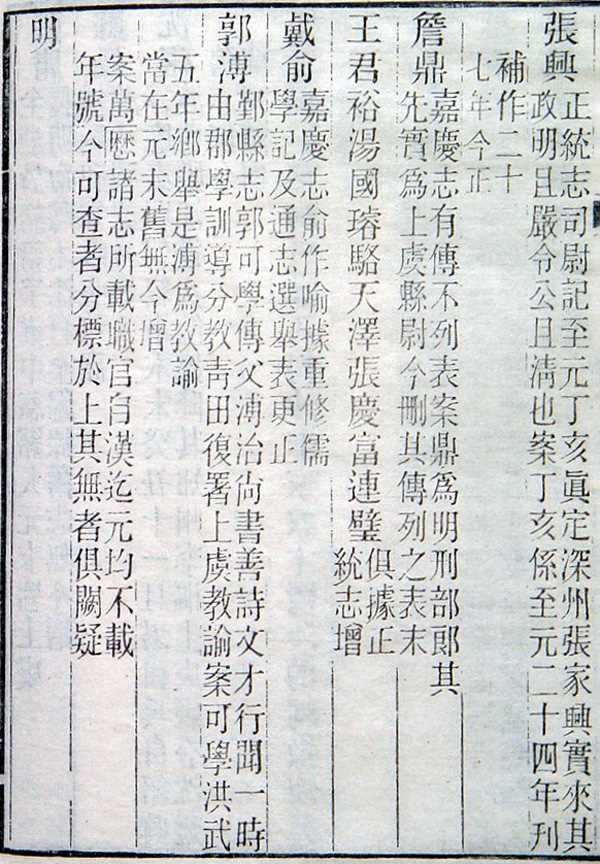 張興正統志司尉記至元丁亥眞定深州張家興實來其
政明且嚴令公且淸也案丁亥係至元二十四年刊
補作二十
七年今正
詹鼎嘉慶志有傳不列表案鼎爲明刑部郎其
先實爲上虞縣尉今刪其傳列之表末
王君裕湯國璿駱天澤張慶富連璧俱據正
統志增
戴俞嘉慶志俞作喻據重修儒
學記及通志選舉表更正
郭溥鄞縣志郭可學傳父溥治尙書善詩文才行聞一時
由郡學訓導分教靑田復署上虞教諭案可學洪武
五年鄕舉是溥爲教諭
當在元末舊無今增
案萬厯諸志所載職官自漢迄元均不載
年號今可查者分標於上其無者俱闕疑
明